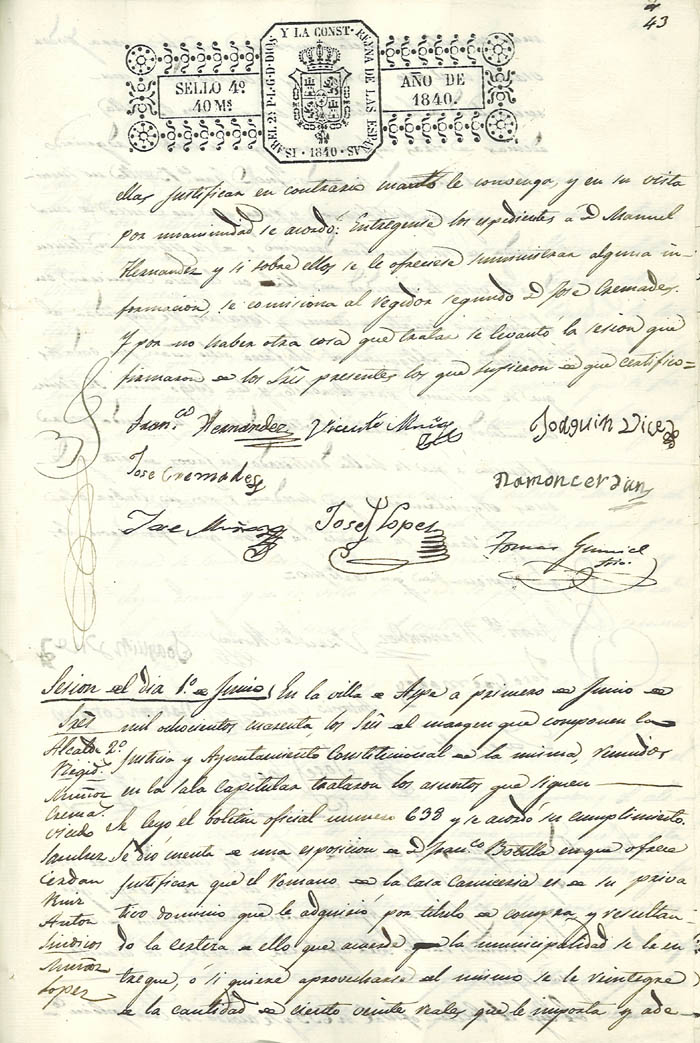 43
Y LA CONST. REYNA DE LAS ESPAÑAS
ISABEL 2ª P.L.G.D.DIOS
SELLO 4º
40 Ms
AÑO DE
1840.
1840
ellas justificar en contrario cuanto le convenga, y en su vista
por unanimidad se acordó: Entreguense los espedientes á D. Manuel
Hernandez y si sobre ellos se le ofreciese suministrar alguna in-
formacion, se comisiona al regidor segundo D. Jose Cremades.
Y por no haber otra cosa que tratar se levantó la sesion que
firmaron de los Sres presentes los que supieron de que certifico=
Franco Hernandez Vicente Muñoz Joaquin Vicedo
Jose Cremades Ramon cerdan
Jose Muñoz Jose Lopez
Tomas Srio.
Sesion del dia 1º de Junio En la villa de Aspe a primero de Junio de
Sres mil ochocientos cuarenta los Sres del margen que componen la
Alcalde 2º Justicia y Ayuntamiento Constitucional de la misma, reunidos
Regid.s
Muñoz en la sala capitular trataron los asuntos que siguen
Crema.s
Vicedo Se leyó el boletin oficial numero 638 y se acordó su cumplimiento.
Sanchez Se dió cuenta de una esposicion de D. Franco Botella en que ofrece
Cerdan justificar que el romano de la casa carniceria es de su priva
Ruiz
Autor tivo dominio que le adquirió por titulo de compra, y resultan-
Sindicos do la certeza de ello que acuerde la municipalidad se le en
Muñoz tregue, ó si quiere aprovecharse del mismo se le reintegre
Lopez de la cantidad de ciento veinte reales que le importa y ade-